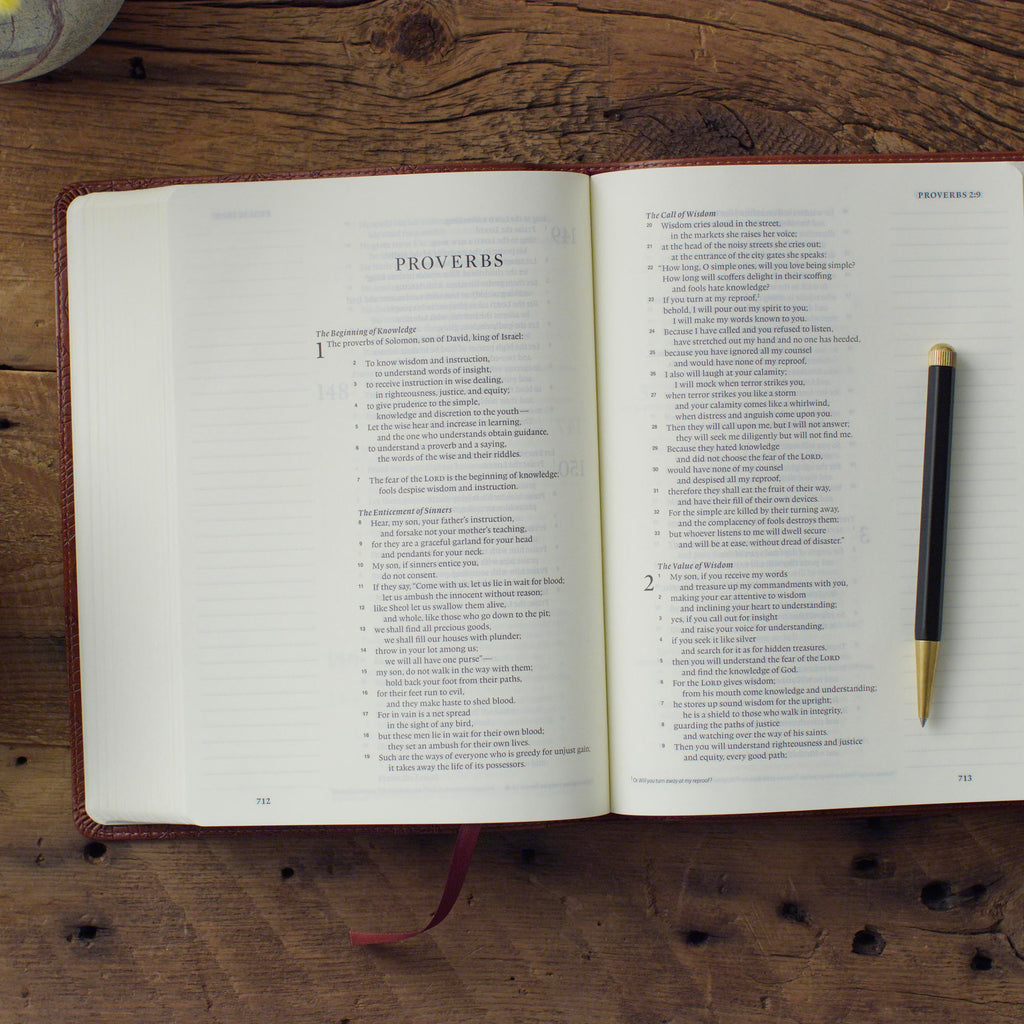 PROVERBS
The Beginning of Knowledge
1 The proverbs of Solomon, son of David, king of Israel:
2 To know wisdom and instruction,
to understand words of insight,
3 to receive instruction in wise dealing,
in righteousness, justice, and equity;
4 to give prudence to the simple,
knowledge and discretion to the youth—
5 Let the wise hear and increase in learning,
and the one who understands obtain guidance,
6 to understand a proverb and a saying,
the words of the wise and their riddles.
7 The fear of the LORD is the beginning of knowledge;
fools despise wisdom and instruction.
The Enticement of Sinners
8 Hear, my son, your father's instruction,
and forsake not your mother's teaching,
9 for they are a graceful garland for your head
and pendants for your neck.
10 My son, if sinners entice you,
do not consent.
11 If they say, "Come with us, let us lie in wait for blood;
let us ambush the innocent without reason;
12 like Sheol let us swallow them alive,
and whole, like those who go down to the pit;
13 we shall find all precious goods,
we shall fill our houses with plunder;
14 throw in your lot among us;
we will all have one purse"—
15 my son, do not walk in the way with them;
hold back your foot from their paths,
16 for their feet run to evil,
and they make haste to shed blood.
17 For in vain is a net spread
in the sight of any bird,
18 but these men lie in wait for their own blood;
they set an ambush for their own lives.
19 Such are the ways of everyone who is greedy for unjust gain;
it takes away the life of its possessors.
712
PROVERBS 2:9
The Call of Wisdom
20 Wisdom cries aloud in the street,
in the markets she raises her voice;
21 at the head of the noisy streets she cries out;
at the entrance of the city gates she speaks:
22 "How long, O simple ones, will you love being simple?
How long will scoffers delight in their scoffing
and fools hate knowledge?
23 If you turn at my reproof,1
behold, I will pour out my spirit to you;
I will make my words known to you.
24 Because I have called and you refused to listen,
have stretched out my hand and no one has heeded,
25 because you have ignored all my counsel
and would have none of my reproof,
26 I also will laugh at your calamity;
I will mock when terror strikes you,
27 when terror strikes you like a storm
and your calamity comes like a whirlwind,
when distress and anguish come upon you.
28 Then they will call upon me, but I will not answer;
they will seek me diligently but will not find me.
29 Because they hated knowledge
and did not choose the fear of the LORD,
30 would have none of my counsel
and despised all my reproof,
31 therefore they shall eat the fruit of their way,
and have their fill of their own devices.
32 For the simple are killed by their turning away,
and the complacency of fools destroys them;
33 but whoever listens to me will dwell secure
and will be at ease, without dread of disaster."
The Value of Wisdom
2 1 My son, if you receive my words
and treasure up my commandments with you,
2 making your ear attentive to wisdom
and inclining your heart to understanding;
3 yes, if you call out for insight
and raise your voice for understanding,
4 if you seek it like silver
and search for it as for hidden treasures,
5 then you will understand the fear of the LORD
and find the knowledge of God.
6 For the LORD gives wisdom;
from his mouth come knowledge and understanding;
7 he stores up sound wisdom for the upright;
he is a shield to those who walk in integrity,
8 guarding the paths of justice
and watching over the way of his saints.
9 Then you will understand righteousness and justice
and equity, every good path;
1 Or Will you turn away at my reproof?
713